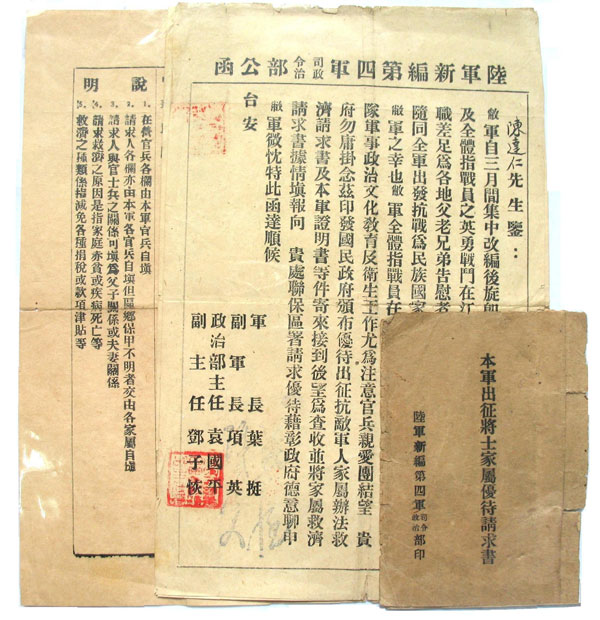 陸軍新編第四軍司令政治部公函
陳達仁先生鑒：
敝軍自三月間集中改編後旋卽
及全體指戰員之英勇戰鬥在江
職差足爲各地父老兄弟告慰者
隨同全軍出發抗戰爲民族國家
敝軍之幸也敝軍全體指戰員在
隊軍事政治文化敎育及衞生工作尤爲注意官兵親愛團結望 貴
府勿庸掛念茲印發國民政府頒布優待出征抗敵軍人家屬辦法救
濟請求書及本軍證明書等件寄來接到後望爲查收並將家屬救濟
請求書據情塡報向 貴處聯保區署請求優待藉彰政府德意聊申
敝軍微忱特此函達順候
台安
軍長葉挺
副軍長項英
政治部主任袁國平
副主任鄧子恢
本軍出征將士家屬優待請求書
陸軍新編第四軍司令政治部印
說明
1. 在營官兵各欄由本軍官兵自塡
2. 請求人各欄亦由本軍各官兵自塡但區鄉保甲不明者交由各家屬自塡
3. 請求人與官士兵之關係可塡爲父子關係或夫妻關係
4. 請求救濟之原因是指家庭赤貧或疾病死亡等
5. 救濟之種類係指減免各種捐稅或款項津貼等